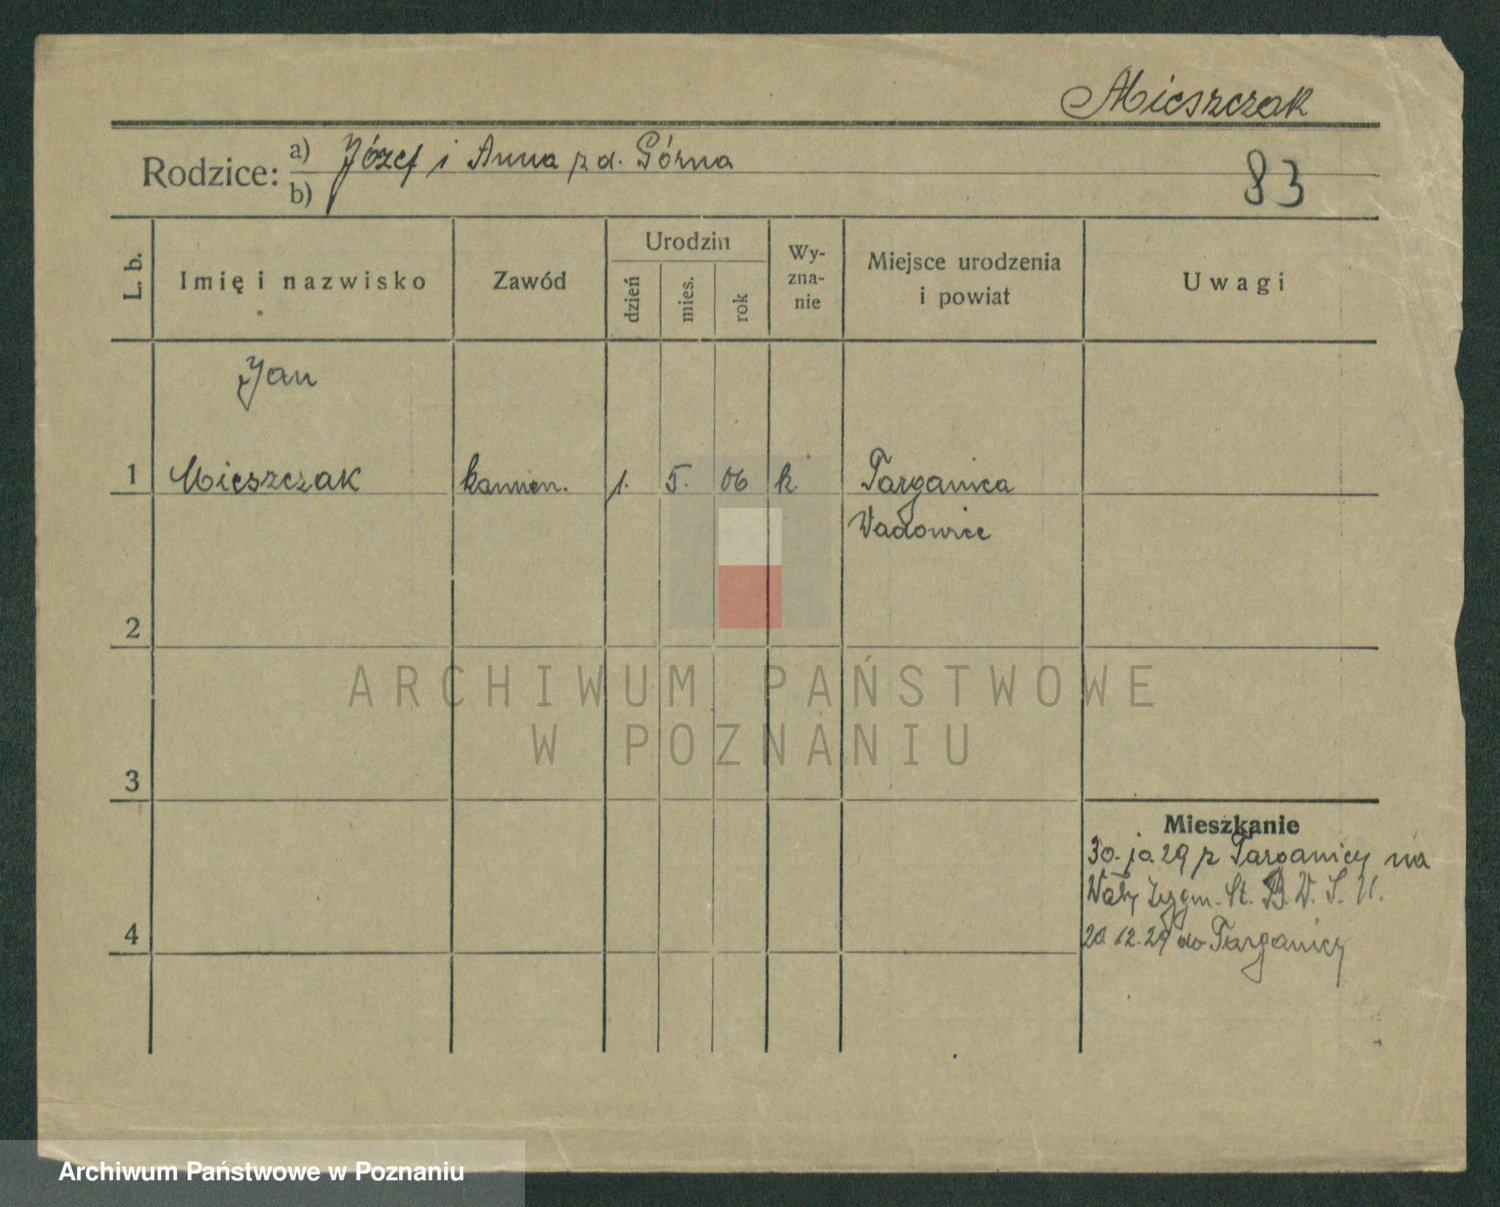 Mieszczak
Rodzice: a) Józef i Anna z d. Górna
b)
83
L. b.
Imię i nazwisko
Zawód
Urodzin
dzień
mies.
rok
Wy-
zna-
nie
Miejsce urodzenia
i powiat
Uwagi
Jan
1 Mieszczak kamien. 1. 5. 06 k. Targanica
Wadowice
2
3
4
Mieszkanie
30. 10. 29 z Targanicy na
Wały Zygm. St. B. W. S. U.
20. 12. 29 do Targanicy
ARCHIWUM PAŃSTWOWE
W POZNANIU
Archiwum Państwowe w Poznaniu